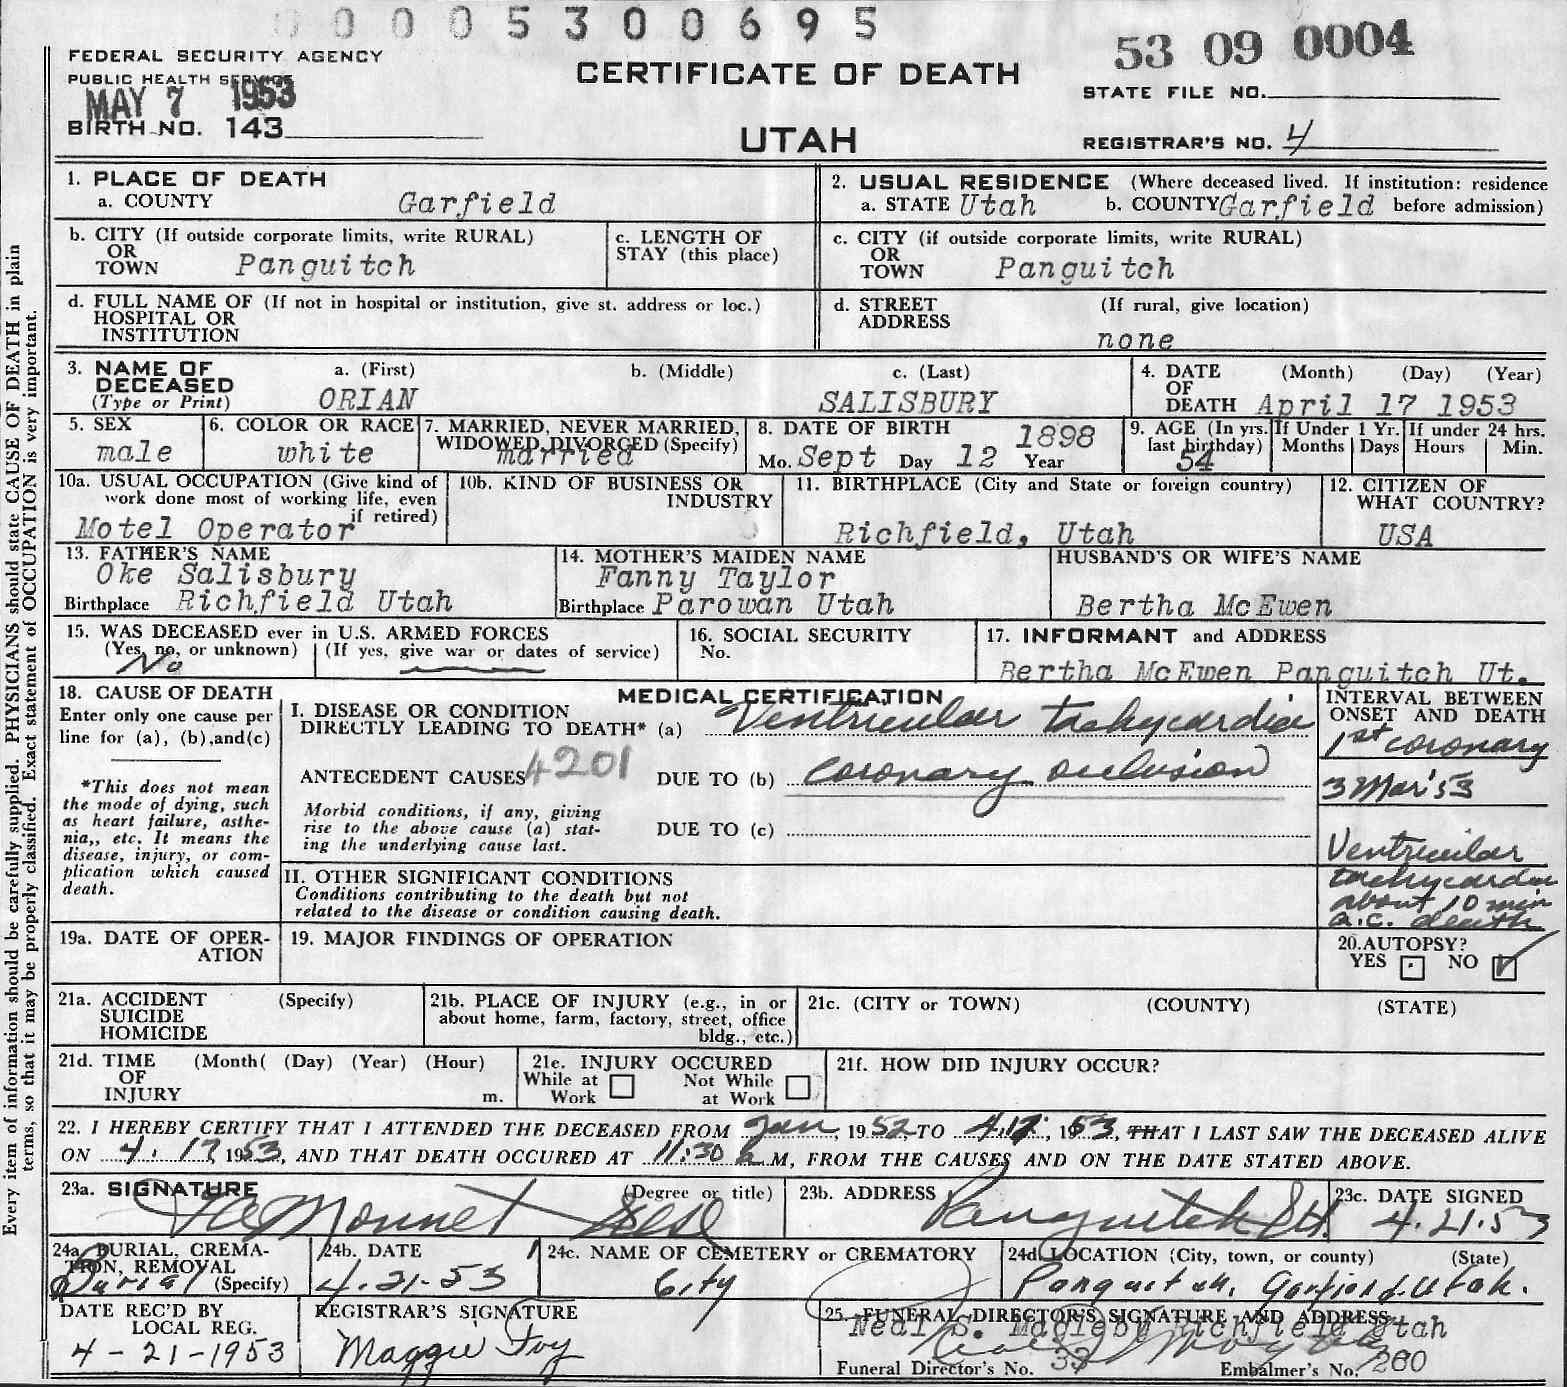 0005300695
53 09 0004
FEDERAL SECURITY AGENCY
PUBLIC HEALTH SERVICE
MAY 7 1953
BIRTH NO. 143
CERTIFICATE OF DEATH
UTAH
STATE FILE NO.
REGISTRAR'S NO. 4
Every item of information should be carefully supplied. PHYSICIANS should state CAUSE OF DEATH in plain
terms, so that it may be properly classified. Exact statement of OCCUPATION is very important.
1. PLACE OF DEATH
a. COUNTY Garfield
2. USUAL RESIDENCE (Where deceased lived. If institution: residence
a. STATE Utah b. COUNTY Garfield before admission)
b. CITY (If outside corporate limits, write RURAL)
OR
TOWN Panguitch
c. LENGTH OF
STAY (this place)
c. CITY (if outside corporate limits, write RURAL)
OR
TOWN Panguitch
d. FULL NAME OF (If not in hospital or institution, give st. address or loc.)
HOSPITAL OR
INSTITUTION
d. STREET (If rural, give location)
ADDRESS
none
3. NAME OF DECEASED
(Type or Print)
a. (First) b. (Middle) c. (Last)
ORIAN SALISBURY
4. DATE OF DEATH (Month) (Day) (Year)
April 17 1953
5. SEX
male
6. COLOR OR RACE
white
7. MARRIED, NEVER MARRIED,
WIDOWED, DIVORCED (Specify)
married
8. DATE OF BIRTH 1898
Mo. Sept Day 12 Year
9. AGE (In yrs. last birthday)
54
If Under 1 Yr.
Months Days
If under 24 hrs.
Hours Min.
10a. USUAL OCCUPATION (Give kind of
work done most of working life, even
if retired)
Motel Operator
10b. KIND OF BUSINESS OR
INDUSTRY
11. BIRTHPLACE (City and State or foreign country)
Richfield, Utah
12. CITIZEN OF
WHAT COUNTRY?
USA
13. FATHER'S NAME
Oke Salisbury
Birthplace Richfield Utah
14. MOTHER'S MAIDEN NAME
Fanny Taylor
Birthplace Parowan Utah
HUSBAND'S OR WIFE'S NAME
Bertha McEwen
15. WAS DECEASED ever in U.S. ARMED FORCES
(Yes, no, or unknown) (If yes, give war or dates of service)
No
16. SOCIAL SECURITY
No.
17. INFORMANT and ADDRESS
Bertha McEwen Panguitch Ut.
18. CAUSE OF DEATH
Enter only one cause per
line for (a), (b),and(c)
*This does not mean
the mode of dying, such
as heart failure, asthe-
nia,, etc. It means the
disease, injury, or com-
plication which caused
death.
MEDICAL CERTIFICATION
I. DISEASE OR CONDITION
DIRECTLY LEADING TO DEATH* (a) Ventricular tachycardia
ANTECEDENT CAUSES 4201 DUE TO (b) coronary occlusion
Morbid conditions, if any, giving
rise to the above cause (a) stat-
ing the underlying cause last.
DUE TO (c)
II. OTHER SIGNIFICANT CONDITIONS
Conditions contributing to the death but not
related to the disease or condition causing death.
INTERVAL BETWEEN
ONSET AND DEATH
1st coronary
3 Mar '53
Ventricular
tachycardia
about 10 min
a.c. death
19a. DATE OF OPER-
ATION
19. MAJOR FINDINGS OF OPERATION
20. AUTOPSY?
YES NO
21a. ACCIDENT (Specify)
SUICIDE
HOMICIDE
21b. PLACE OF INJURY (e.g., in or
about home, farm, factory, street, office
bldg., etc.)
21c. (CITY or TOWN) (COUNTY) (STATE)
21d. TIME (Month( (Day) (Year) (Hour)
OF
INJURY m.
21e. INJURY OCCURED
While at Work Not While at Work
21f. HOW DID INJURY OCCUR?
22. I HEREBY CERTIFY THAT I ATTENDED THE DECEASED FROM Jan, 1952, TO 4.17, 1953, THAT I LAST SAW THE DECEASED ALIVE
ON 4. 17, 1953, AND THAT DEATH OCCURED AT 11:30 M, FROM THE CAUSES AND ON THE DATE STATED ABOVE.
23a. SIGNATURE (Degree or title)
23b. ADDRESS
Panguitch Ut.
23c. DATE SIGNED
4.21.53
24a. BURIAL, CREMA-
TION, REMOVAL
(Specify)
Burial
24b. DATE
4-21-53
24c. NAME OF CEMETERY or CREMATORY
City
24d. LOCATION (City, town, or county) (State)
Panguitch, Garfield. Utah.
DATE REC'D BY
LOCAL REG.
4-21-1953
REGISTRAR'S SIGNATURE
Maggie Foy
25. FUNERAL DIRECTOR'S SIGNATURE AND ADDRESS
Neal S. Magleby Richfield Utah
Funeral Director's No. 33 Embalmer's No. 260